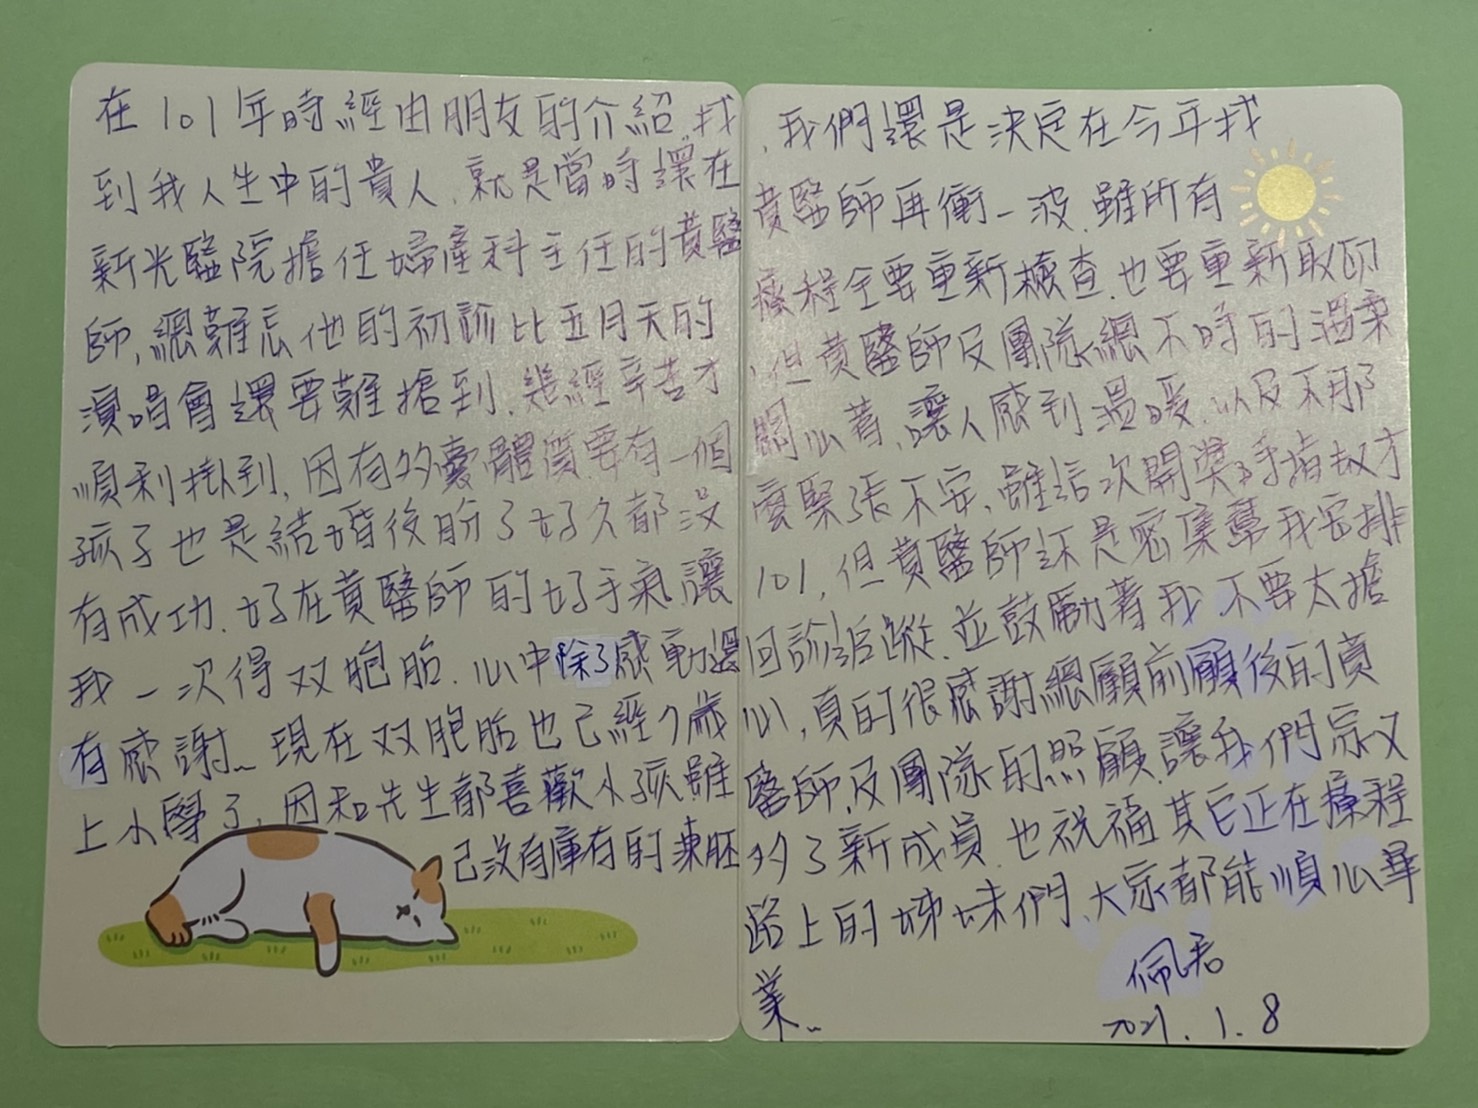 在101年時經由朋友的介紹,找
到我人生中的貴人,就是當時還在
新光醫院擔任婦產科主任的黃醫
師,總難忘他的初診比五月天的
演唱會還要難搶到,幾經辛苦才
順利掛到,因有多囊體質要有一個
孩子也是結婚後盼了好久都沒
有成功,好在黃醫師的好手氣,讓
我一次得双胞胎,心中除了感動還
有感謝..現在双胞胎也已經7歲
上小學了,因和先生都喜歡小孩,雖
已沒有庫存的凍胚
,我們還是決定在今年找
黃醫師再衝一波,雖所有
療程全要重新檢查,也要重新取卵
,但黃醫師及團隊總不時的溫柔
關心著,讓人感到溫暖,以及不那
麼緊張不安,雖這次開獎手指扠才
101,但黃醫師还是密集幫我安排
回診追蹤,並鼓勵著我不要太擔
心,真的很感謝總顧前顧後的黃
醫師,及團隊的照顧,讓我們家又
多了新成員,也祝福其它正在療程
路上的姊妹們,大家都能順心畢
業..
佩君
2021.1.8